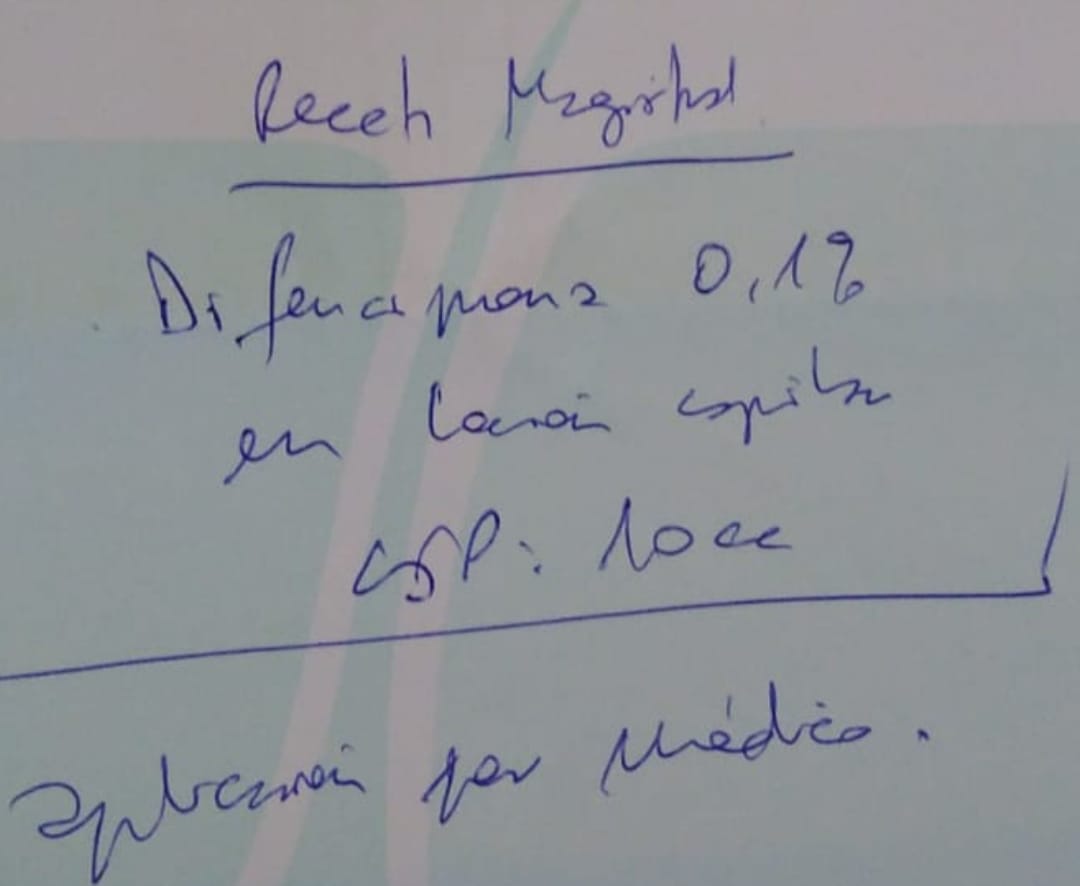 Receta Magistral
Difenciprona 0,1%
en loción capilar
CSP: 10cc
aplicación por Médico.